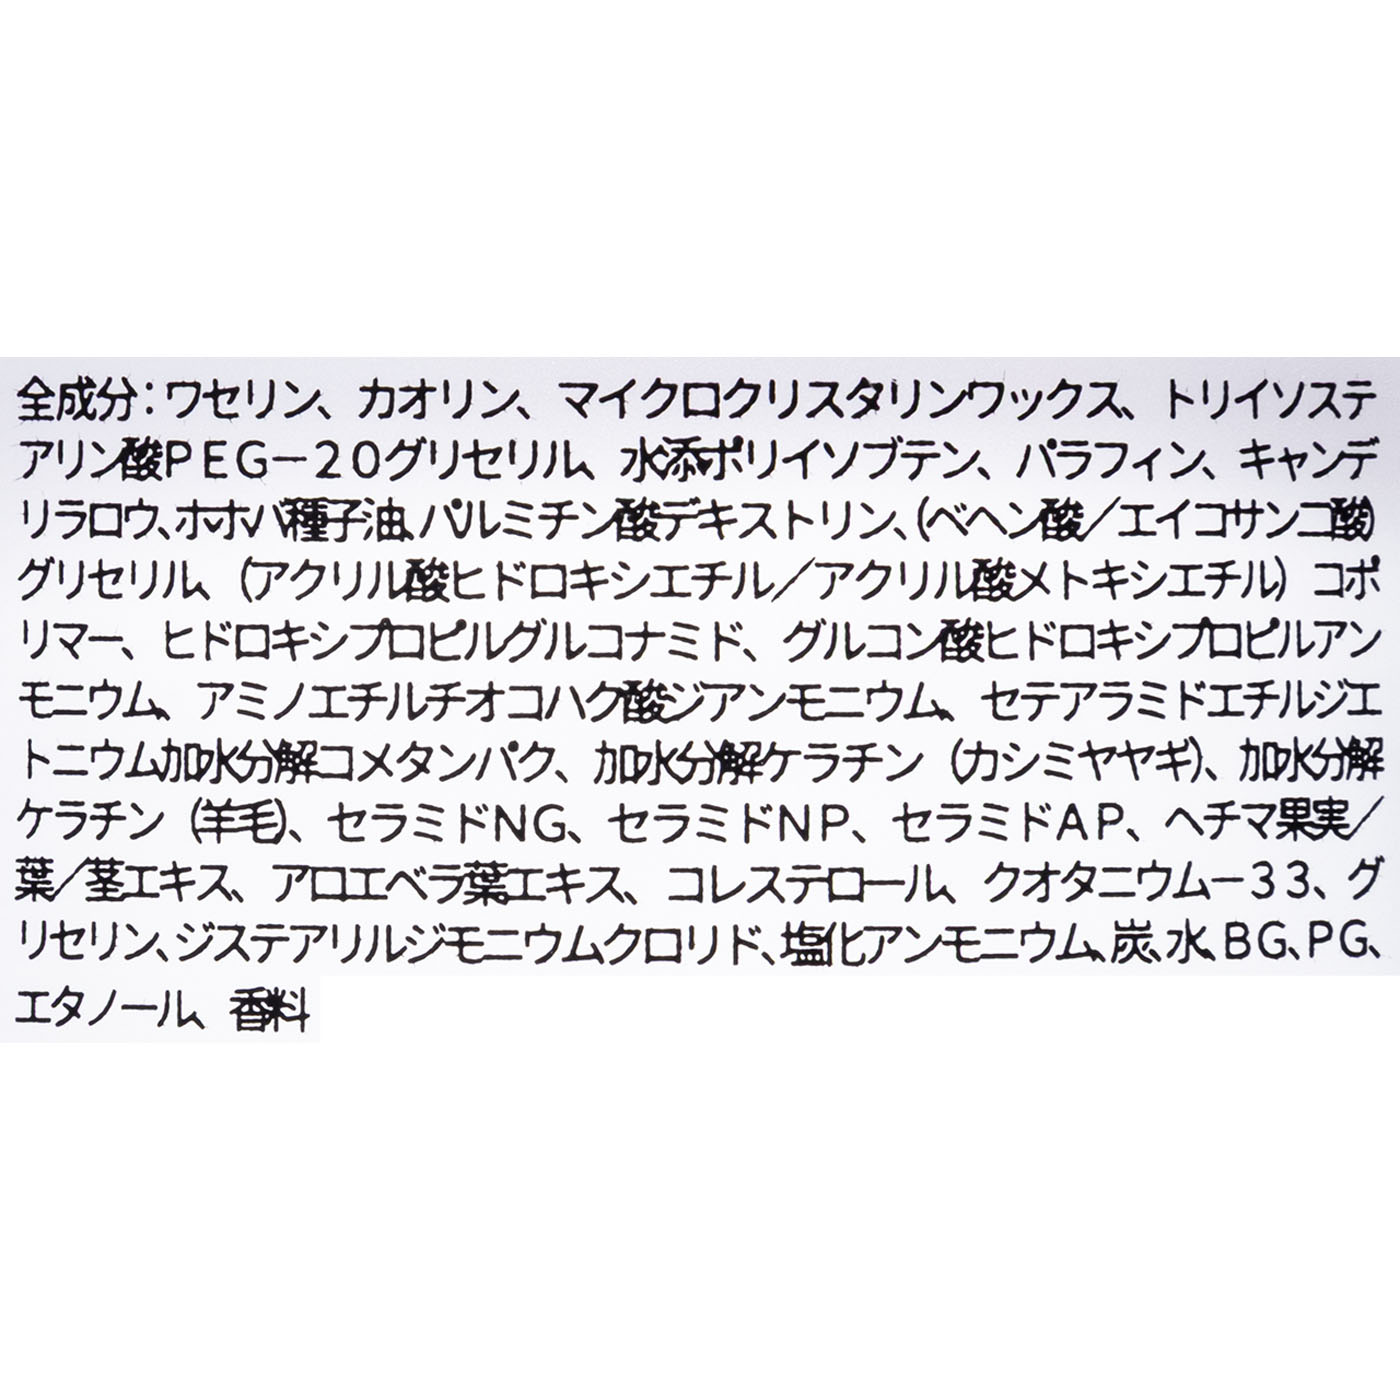 全成分：ワセリン、カオリン、マイクロクリスタリンワックス、トリイソステ
アリン酸ＰＥＧ－２０グリセリル、水添ポリイソブテン、パラフィン、キャンデ
リラロウ、ホホバ種子油、パルミチン酸デキストリン、（ベヘン酸／エイコサン二酸）
グリセリル、（アクリル酸ヒドロキシエチル／アクリル酸メトキシエチル）コポ
リマー、ヒドロキシプロピルグルコナミド、グルコン酸ヒドロキシプロピルアン
モニウム、アミノエチルチオコハク酸ジアンモニウム、セテアラミドエチルジエ
トニウム加水分解コメタンパク、加水分解ケラチン（カシミヤヤギ）、加水分解
ケラチン（羊毛）、セラミドＮＧ、セラミドＮＰ、セラミドＡＰ、ヘチマ果実／
葉／茎エキス、アロエベラ葉エキス、コレステロール、クオタニウム－３３、グ
リセリン、ジステアリルジモニウムクロリド、塩化アンモニウム、炭、水、ＢＧ、ＰＧ、
エタノール、香料